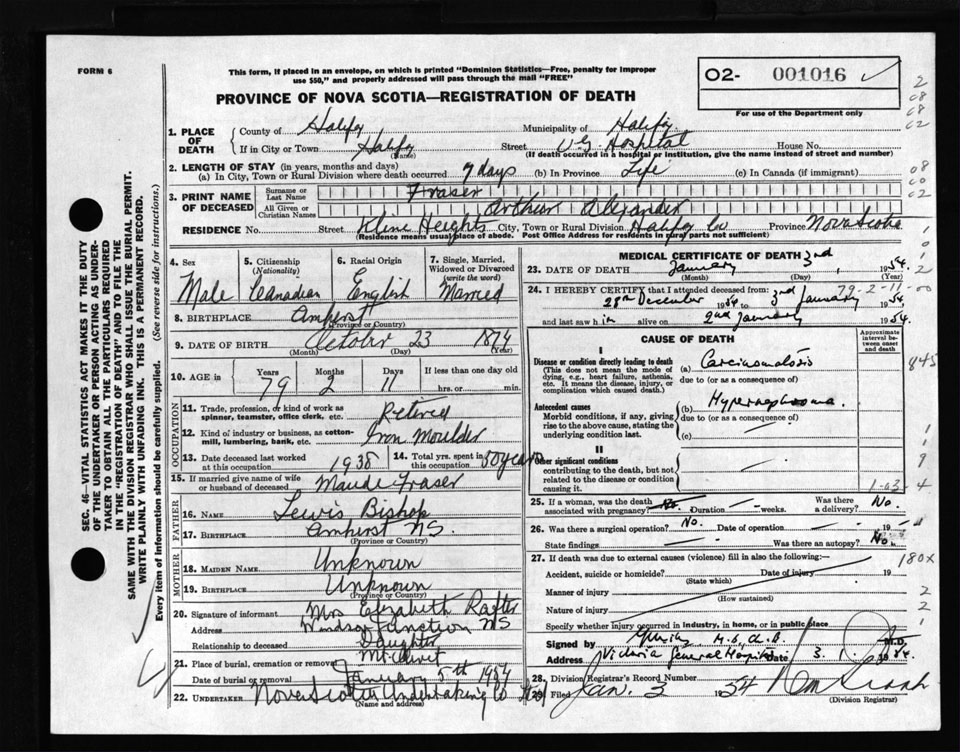 FORM 6
This form, if placed in an envelope, on which is printed "Dominion Statistics—Free, penalty for improper
use $50," and properly addressed will pass through the mail "FREE"
O2- 001016 ✓
For use of the Department only
PROVINCE OF NOVA SCOTIA—REGISTRATION OF DEATH
1. PLACE OF DEATH { County of Halifax Municipality of Halifax
If in City or Town Halifax (Name) Street V.G. Hospital House No.
(If death occurred in a hospital or institution, give the name instead of street and number)
2. LENGTH OF STAY (in years, months and days)
(a) In City, Town or Rural Division where death occurred 7 days (b) In Province Life (c) In Canada (if immigrant)
3. PRINT NAME OF DECEASED { Surname or Last Name Fraser
All Given or Christian Names Arthur Alexander
RESIDENCE No. Street Kline Heights City, Town or Rural Division Halifax Co Province Nova Scotia
(Residence means usual place of abode. Post Office Address for residents in rural parts not sufficient)
SEC. 46—VITAL STATISTICS ACT MAKES IT THE DUTY
OF THE UNDERTAKER OR PERSON ACTING AS UNDER-
TAKER TO OBTAIN ALL THE PARTICULARS REQUIRED
IN THE "REGISTRATION OF DEATH" AND TO FILE THE
SAME WITH THE DIVISION REGISTRAR WHO SHALL ISSUE THE BURIAL PERMIT.
WRITE PLAINLY WITH UNFADING INK. THIS IS A PERMANENT RECORD.
Every item of information should be carefully supplied. (See reverse side for instructions.)
4. Sex Male
5. Citizenship (Nationality) Canadian
6. Racial Origin English
7. Single, Married, Widowed or Divorced (write the word) Married
8. BIRTHPLACE Amherst
(Province or Country)
9. DATE OF BIRTH October 23 1874
(Month) (Day) (Year)
10. AGE in { Years 79 Months 2 Days 11 If less than one day old hrs. or min.
OCCUPATION
11. Trade, profession, or kind of work as spinner, teamster, office clerk, etc. Retired
12. Kind of industry or business, as cotton-mill, lumbering, bank, etc. Iron Moulder
13. Date deceased last worked at this occupation 1938 14. Total yrs. spent in this occupation 50 years
15. If married give name of wife or husband of deceased Maude Fraser
FATHER
16. NAME Lewis Bishop
17. BIRTHPLACE Amherst NS.
(Province or Country)
MOTHER
18. MAIDEN NAME Unknown
19. BIRTHPLACE Unknown
(Province or Country)
20. Signature of informant Mrs Elizabeth
Address Windsor Junction NS
Relationship to deceased Daughter
21. Place of burial, cremation or removal Mt. Olivet
Date of burial or removal January 5th 1954
22. UNDERTAKER Nova Scotia Undertaking Co
(Name and address)
MEDICAL CERTIFICATE OF DEATH
23. DATE OF DEATH January 3rd, 1954.
(Month) (Day)
24. I HEREBY CERTIFY that I attended deceased from:
28th December 1954 to 3rd January 1954,
and last saw h im alive on 2nd January 1954.
79-2-11-00
CAUSE OF DEATH
Approximate interval between onset and death
I
Disease or condition directly leading to death
(This does not mean the mode of dying, e.g., heart failure, asthenia, etc. It means the disease, injury, or complication which caused death.)
(a) Carcinomatosis
due to (or as a consequence of)
Antecedent causes
Morbid conditions, if any, giving rise to the above cause, stating the underlying condition last.
(b) Hypernephroma.
due to (or as a consequence of)
(c)
II
Other significant conditions
contributing to the death, but not related to the disease or condition causing it.
25. If a woman, was the death associated with pregnancy? No. Duration — weeks. Was there a delivery? No.
26. Was there a surgical operation? No. Date of operation — 19
State findings Was there an autopsy? No.
27. If death was due to external causes (violence) fill in also the following:—
Accident, suicide or homicide? Date of injury 19
(State which)
Manner of injury
(How sustained)
Nature of injury
Specify whether injury occurred in industry, in home, or in public place
Signed by M.B, Ch.B. M.D.
Address Victoria General Hospital Date 3. 1. 1954.
28. Division Registrar's Record Number
29. Filed Jan. 3 1954
(Division Registrar)
845
180X